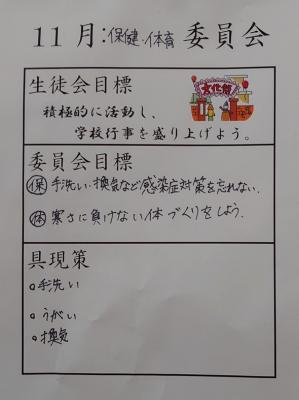 11月:保健・体育 委員会
生徒会目標
文化祭
積極的に活動し、
学校行事を盛り上げよう。
委員会目標
保 手洗い・換気など感染症対策を忘れない。
体 寒さに負けない体づくりをしよう。
具現策
○手洗い
○うがい
○換気